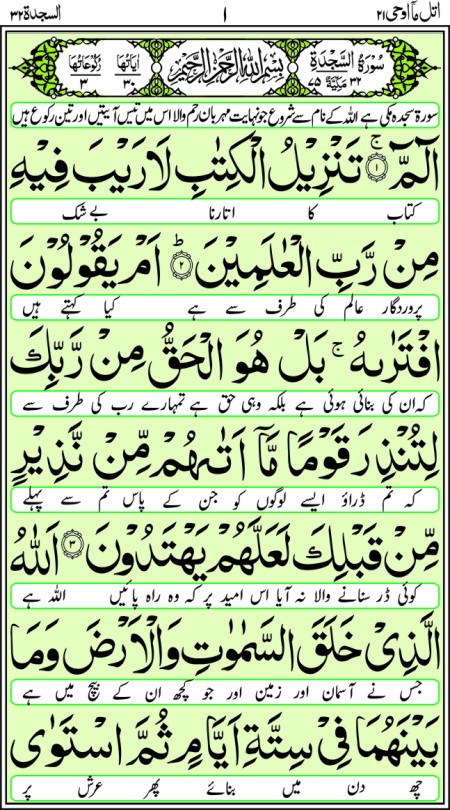 اتل ما اوحی ۲۱ ۱ السجدة ۳۲
سُوْرَةُ السَّجْدَةِ ۳۲ مَکِّیَّةٌ ۷۵ بِسْمِ اللّٰهِ الرَّحْمٰنِ الرَّحِیْمِ اٰیَاتُهَا ۳۰ رُکُوْعَاتُهَا ۳
سورۃ سجدہ مکی ہے اللہ کے نام سے شروع جو نہایت مہربان رحم والا اس میں تیس آیتیں اور تین رکوع ہیں
الٓمّٓ ۚ﴿۱﴾ تَنْزِیْلُ الْکِتٰبِ لَا رَیْبَ فِیْهِ
کتاب کا اتارنا بے شک
مِنْ رَّبِّ الْعٰلَمِیْنَ ؕ﴿۲﴾ اَمْ یَقُوْلُوْنَ
پروردگار عالم کی طرف سے ہے کیا کہتے ہیں
افْتَرٰىهُ ۚ بَلْ هُوَ الْحَقُّ مِنْ رَّبِّكَ
کہ ان کی بنائی ہوئی ہے بلکہ وہی حق ہے تمہارے رب کی طرف سے
لِتُنْذِرَ قَوْمًا مَّاۤ اَتٰىهُمْ مِّنْ نَّذِیْرٍ
کہ تم ڈراؤ ایسے لوگوں کو جن کے پاس تم سے پہلے
مِّنْ قَبْلِكَ لَعَلَّهُمْ یَهْتَدُوْنَ ﴿۳﴾ اَللّٰهُ
کوئی ڈر سنانے والا نہ آیا اس امید پر کہ وہ راہ پائیں اللہ ہے
الَّذِیْ خَلَقَ السَّمٰوٰتِ وَالْاَرْضَ وَمَا
جس نے آسمان اور زمین اور جو کچھ ان کے بیچ میں ہے
بَیْنَهُمَا فِیْ سِتَّةِ اَیَّامٍ ثُمَّ اسْتَوٰی
چھ دن میں بنائے پھر عرش پر